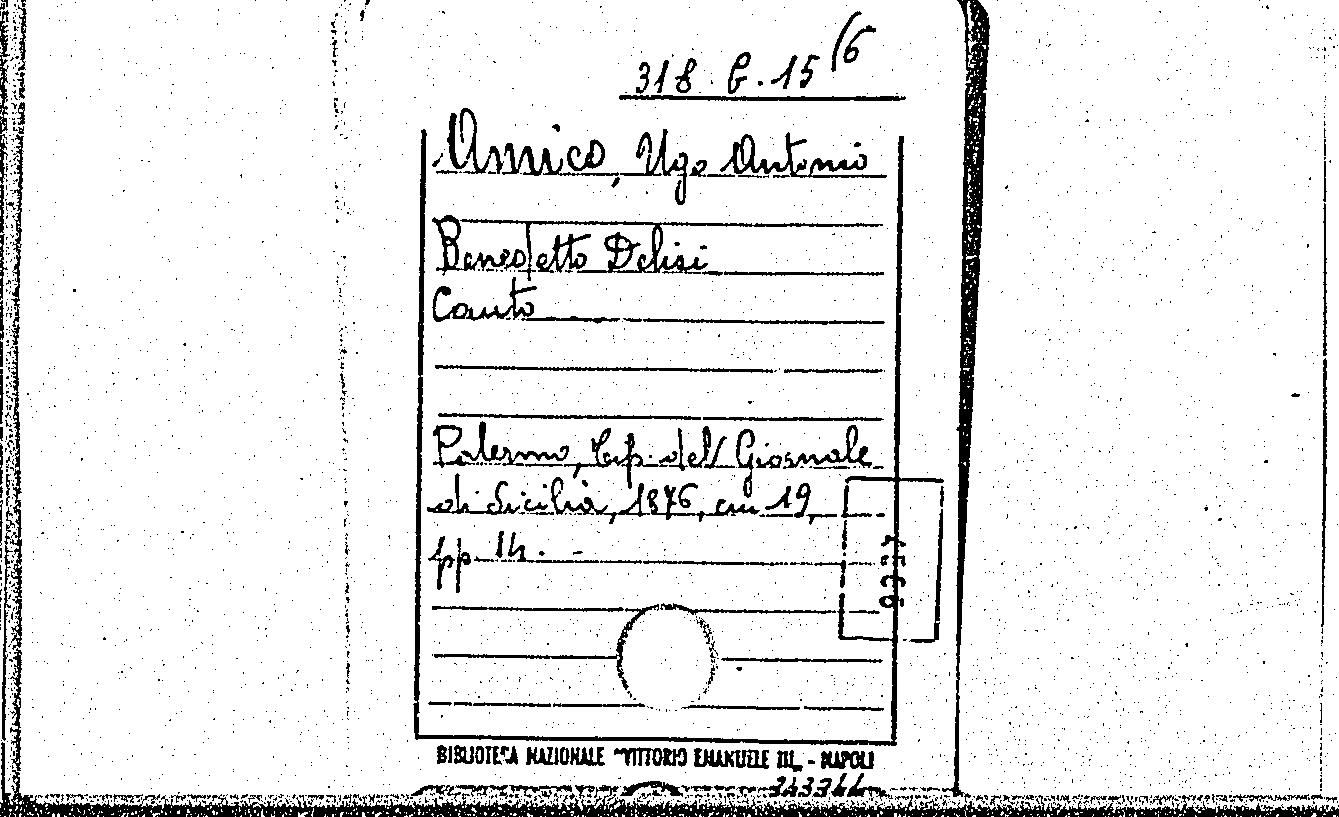 318. G. 15 (6
Amico, Ugo Antonio
Benedetto Delisi
Canto
Palermo, Tip. del Giornale
di Sicilia, 1876, cm 19,
pp. 14. -
BIBLIOTECA NAZIONALE "VITTORIO EMANUELE III„ - NAPOLI